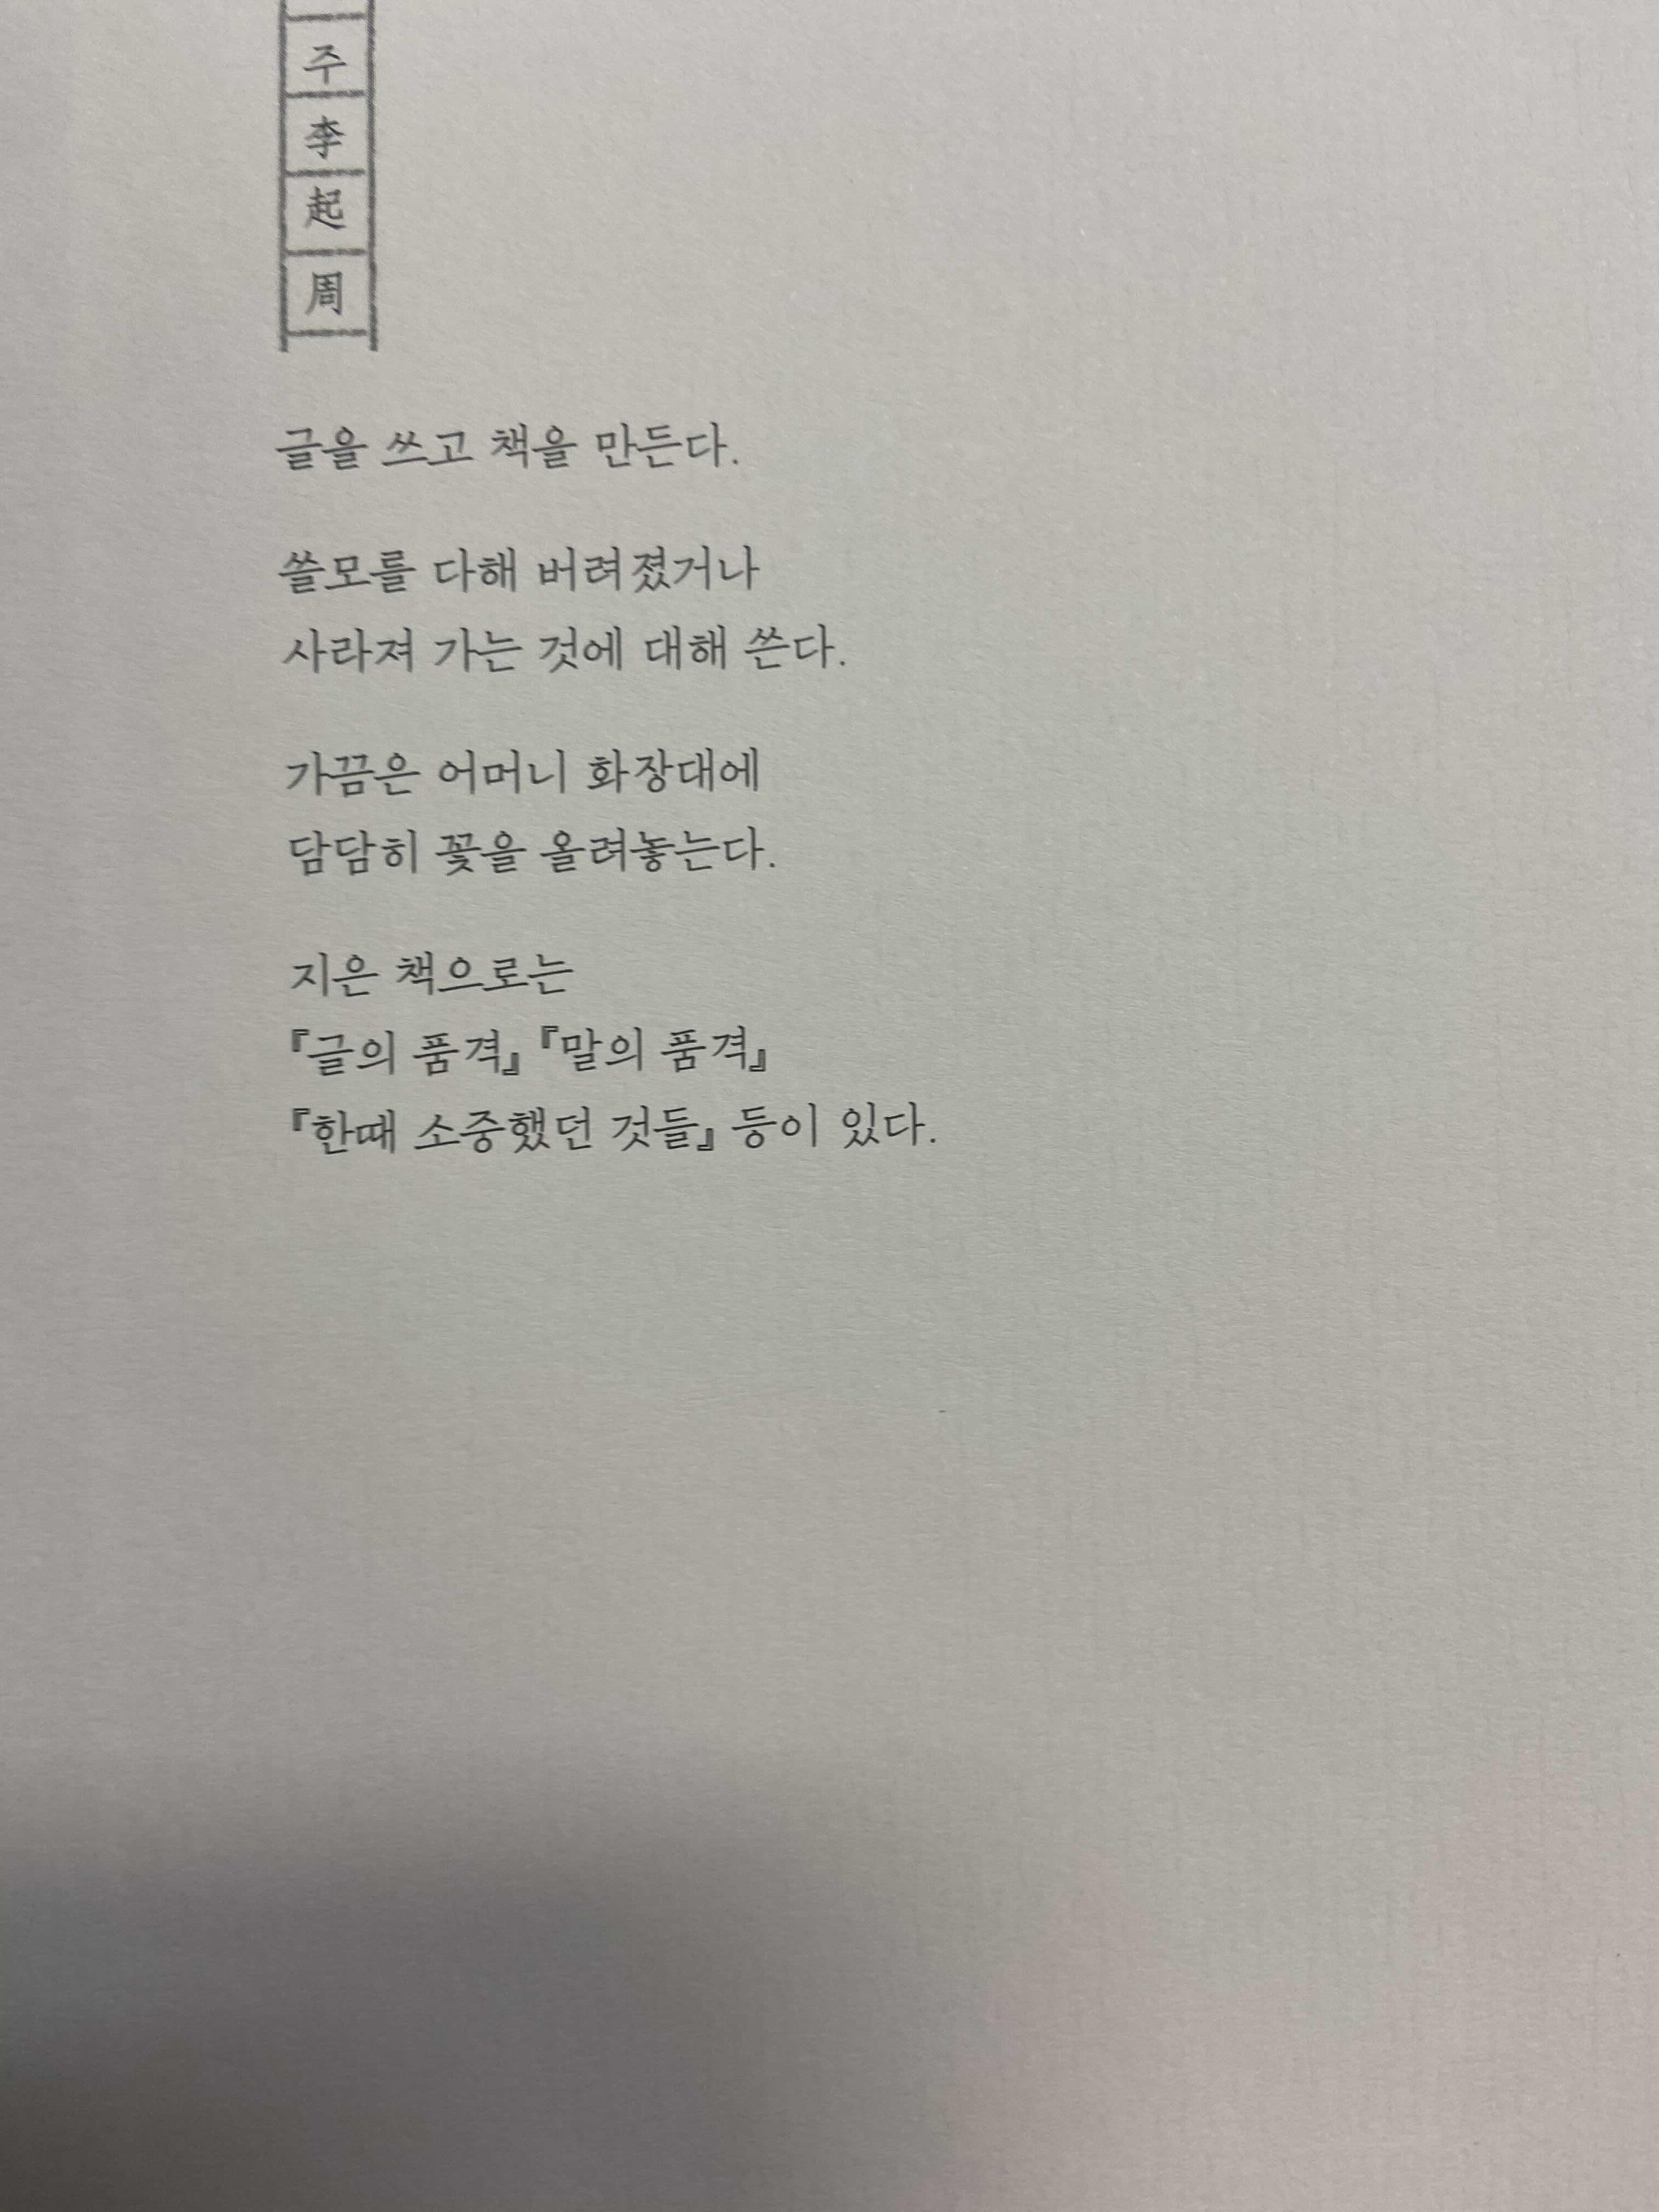 주
李
起
周
글을 쓰고 책을 만든다.
쓸모를 다해 버려졌거나
사라져 가는 것에 대해 쓴다.
가끔은 어머니 화장대에
담담히 꽃을 올려놓는다.
지은 책으로는
『글의 품격』『말의 품격』
『한때 소중했던 것들』 등이 있다.